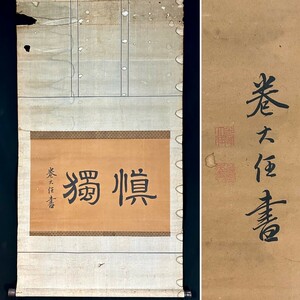 慎獨
巻大任書
巻大任書